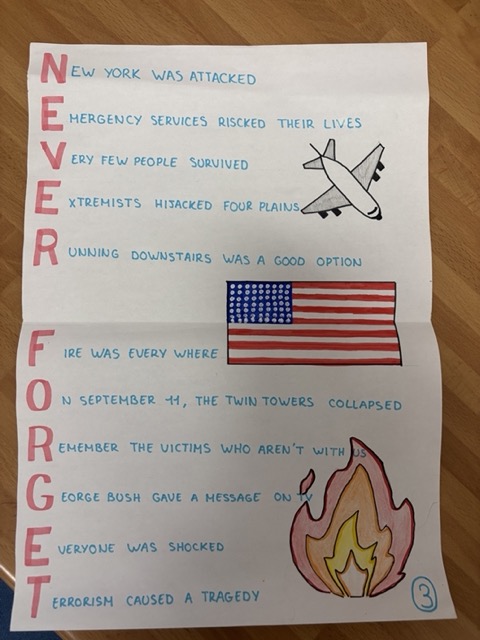 NEW YORK WAS ATTACKED
EMERGENCY SERVICES RISCKED THEIR LIVES
VERY FEW PEOPLE SURVIVED
EXTREMISTS HIJACKED FOUR PLAINS
RUNNING DOWNSTAIRS WAS A GOOD OPTION
FIRE WAS EVERY WHERE
ON SEPTEMBER 11, THE TWIN TOWERS COLLAPSED
REMEMBER THE VICTIMS WHO AREN'T WITH US
GEORGE BUSH GAVE A MESSAGE ON TV
EVERYONE WAS SHOCKED
TERRORISM CAUSED A TRAGEDY
3